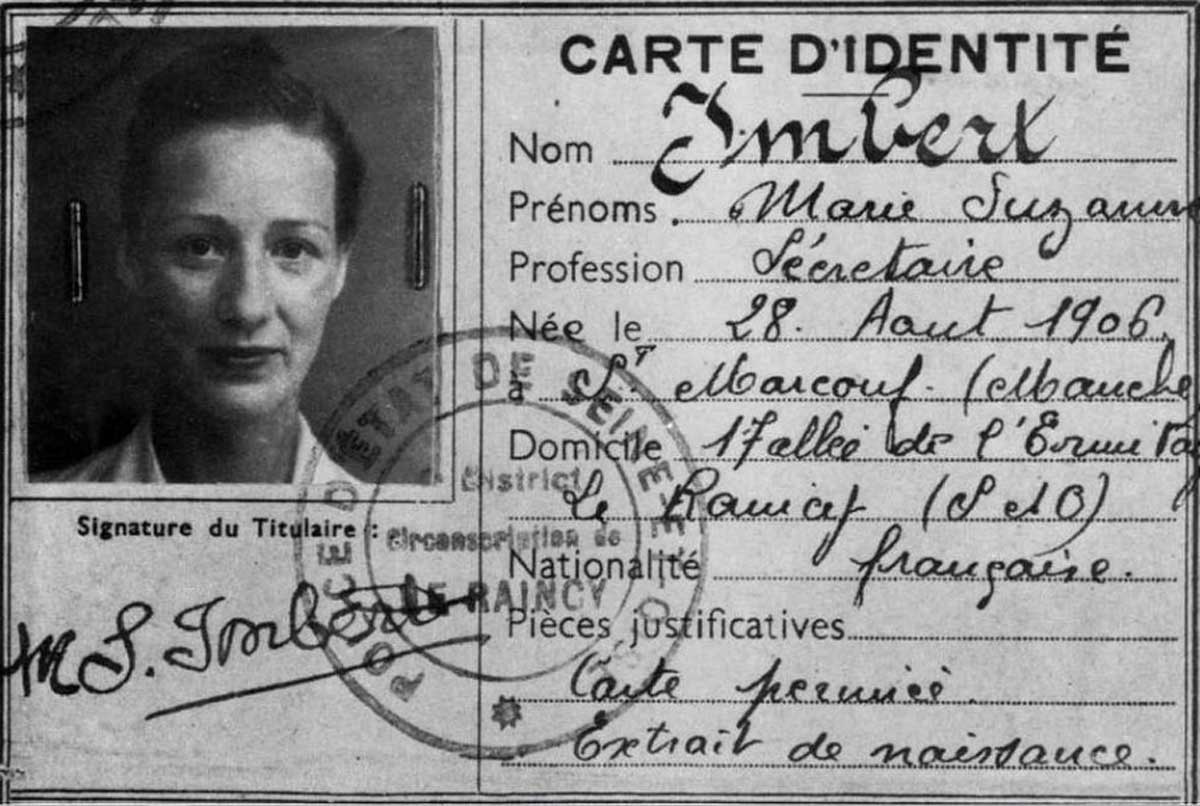 CARTE D'IDENTITÉ
Nom Imbert
Prénoms Marie Suzann
Profession Sécretaire
Née le 28. Aout 1906.
à St Marcouf. (Manche
Domicile 17 allée de l'Ermita
Le Raincy (S et O)
Nationalité française.
Pièces justificatives
Carte
Extrait de naissance.
Signature du Titulaire :
M S. Imbert
POLICE D'ETAT DE SEINE-ET-O
District
Circonscription de
LE RAINCY